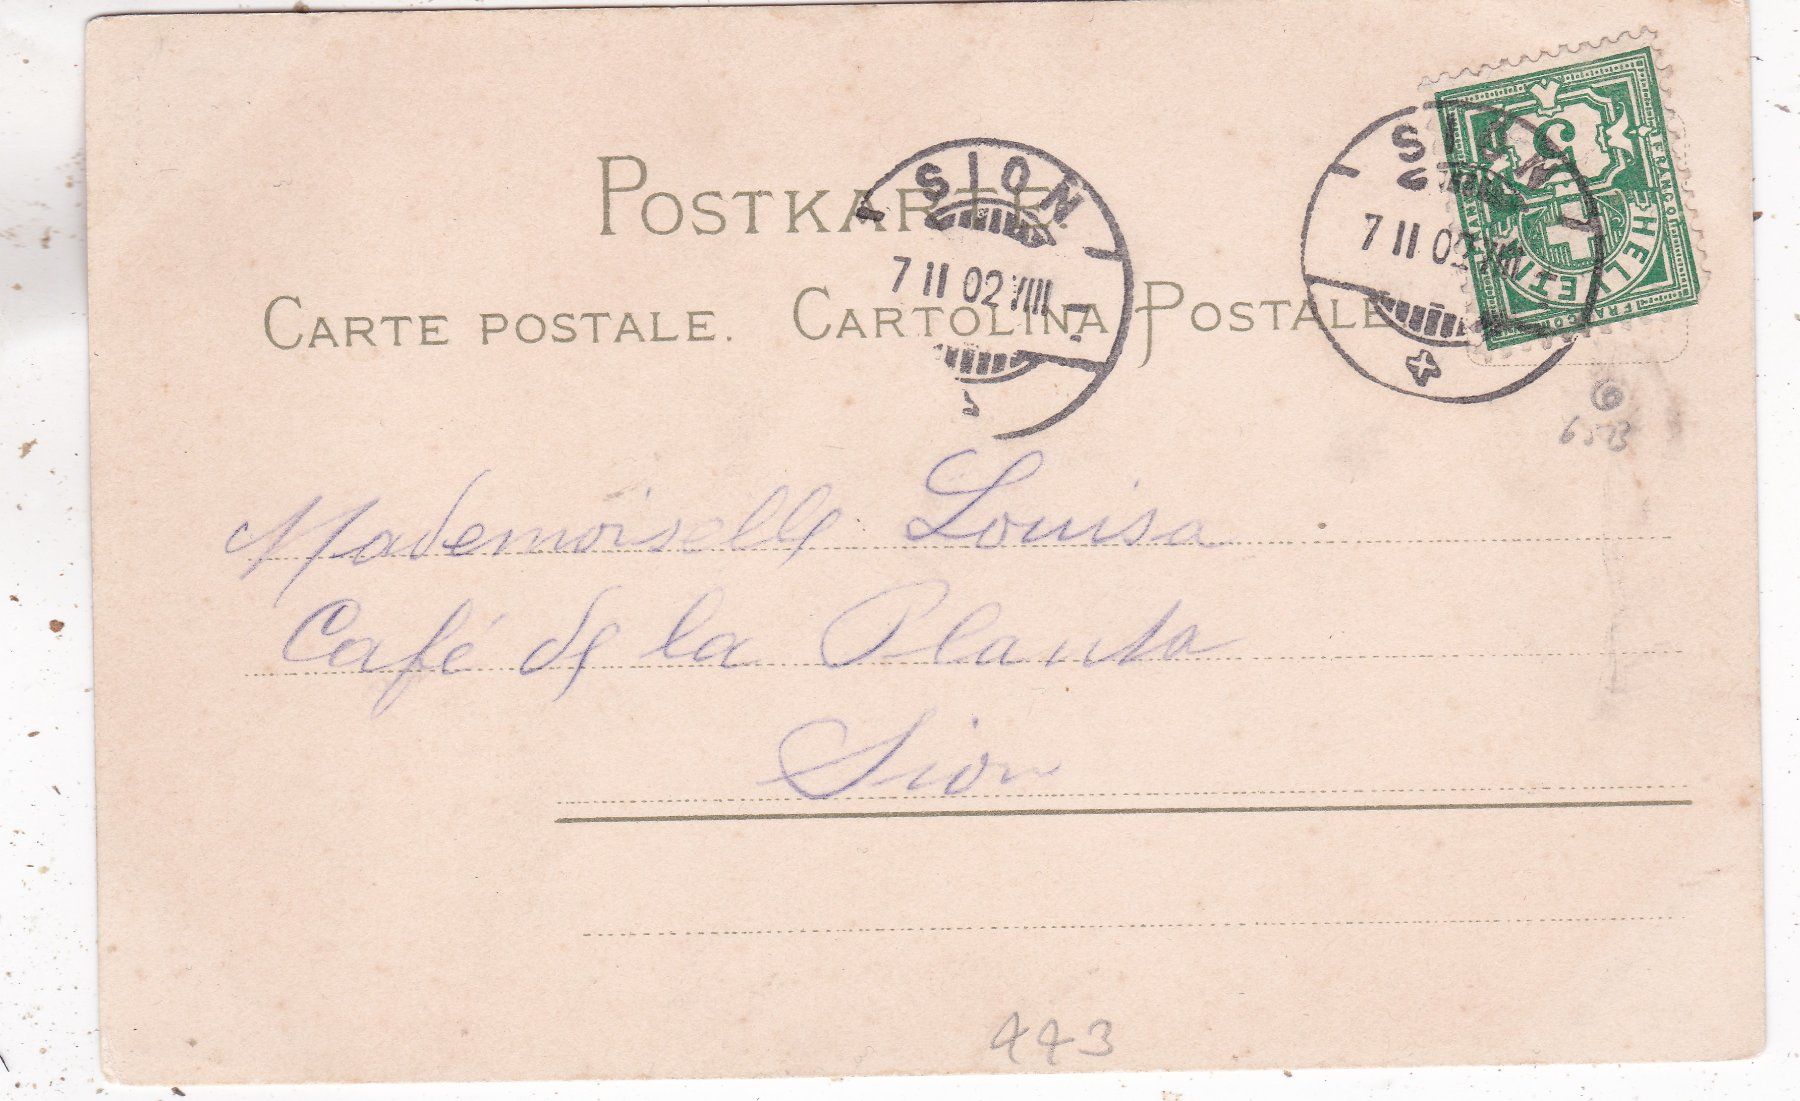 POSTKARTE.
CARTE POSTALE. CARTOLINA POSTALE
SION
7 II 02 VIII
SION
7 II 02 VIII
5
HELVETIA
FRANCO
FRANCO
6
Mademoiselle Louisa
Café de la Planta
Sion
443